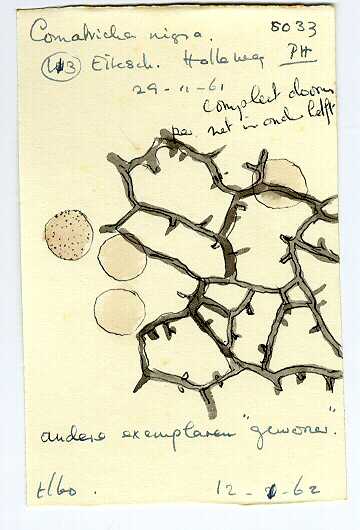 Comatricha nigra. 5033
Eiksch. Holleweg PH
29-11-61
compleet doorn
per. net in ond. helft
andere exemplaren "gewoner".
12-62